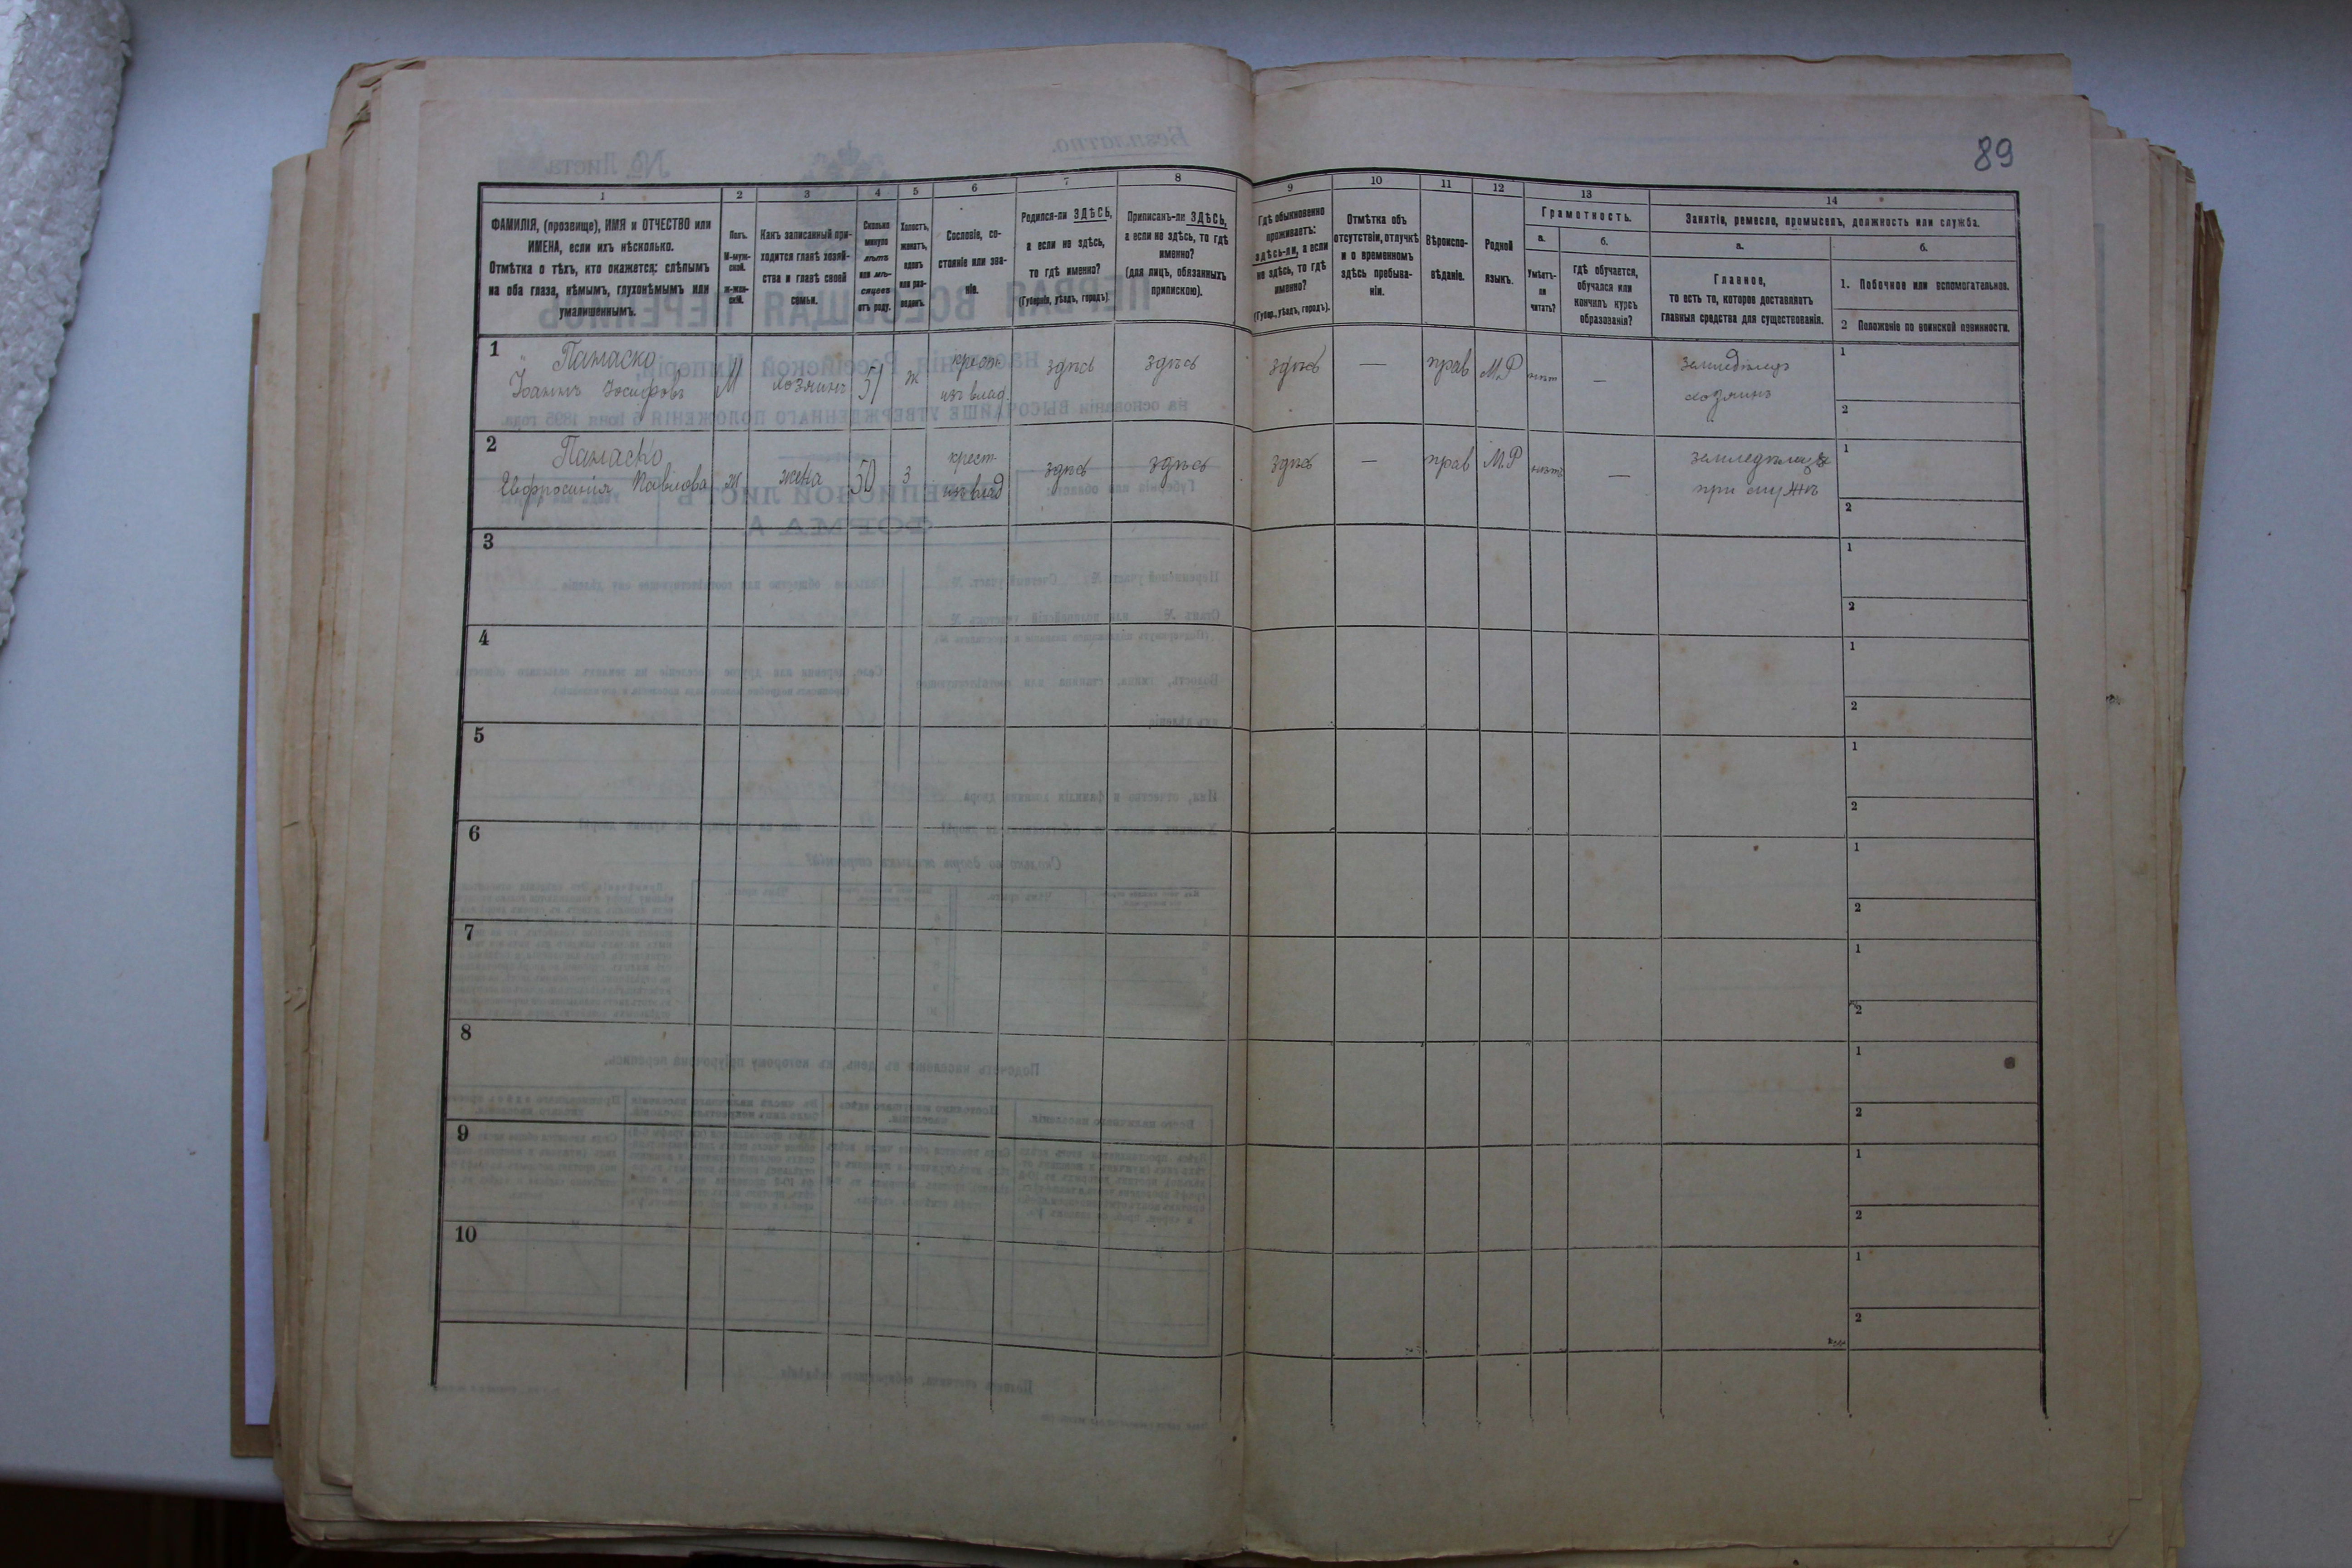 89
1
2
3
4
5
6
7
8
9
10
11
12
13
14
ФАМИЛІЯ, (прозвище), ИМЯ и ОТЧЕСТВО или
ИМЕНА, если ихъ нѣсколько.
Отмѣтка о тѣхъ, кто окажется: слѣпымъ
на оба глаза, нѣмымъ, глухонѣмымъ или
умалишеннымъ.
Полъ.
М-муж-
ской.
Ж-жен-
скій.
Какъ записанный при-
ходится главѣ хозяй-
ства и главѣ своей
семьи.
Сколько
минуло
лѣтъ
или мѣ-
сяцевъ
отъ роду.
Холостъ,
женатъ,
вдовъ
или раз-
веденъ.
Сословіе, со-
стояніе или зва-
ніе.
Родился-ли ЗДѢСЬ,
а если не здѣсь,
то гдѣ именно?
(Губернія, уѣздъ, городъ).
Приписанъ-ли ЗДѢСЬ,
а если не здѣсь, то гдѣ
именно?
(для лицъ, обязанныхъ
припискою).
Гдѣ обыкновенно
проживаетъ:
здѣсь-ли, а если
не здѣсь, то гдѣ
именно?
(Губер., уѣздъ, городъ).
Отмѣтка объ
отсутствіи, отлучкѣ
и о временномъ
здѣсь пребыва-
ніи.
Вѣроиспо-
вѣданіе.
Родной
языкъ.
Грамотность.
а.
Умѣетъ-
ли
читать?
б.
гдѣ обучается,
обучался или
кончилъ курсъ
образованія?
Занятіе, ремесло, промыселъ, должность или служба.
а.
Главное,
то есть то, которое доставляетъ
главныя средства для существованія.
б.
1. Побочное или вспомогательное.
2 Положеніе по воинской повинности.
1
Панаско
Іоаннъ Іосифовъ
М
хозяинъ
51
ж
крест
изъ влад.
здѣсь
здѣсь
здѣсь
—
прав
М.Р
нѣтъ
—
земледѣлецъ
хозяинъ
1
2
2
Панаско
Евфросинія Павлова
ж
жена
50
з
крест
изъ влад
здѣсь
здѣсь
здѣсь
—
прав
М.Р
нѣтъ
—
при мужѣ
1
2
3
1
2
4
1
2
5
1
2
6
1
2
7
1
2
8
1
2
9
1
2
10
1
2